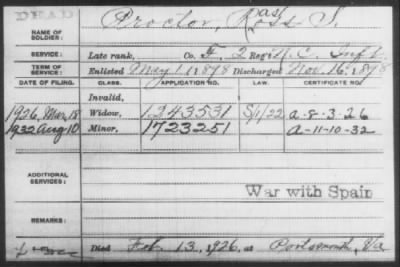 DEAD
NAME OF SOLDIER: Proctor, Ross S.
as
SERVICE: Late rank, Co. F, 2 Reg't N.C. Inf.
TERM OF SERVICE: Enlisted May 1, 1898 Discharged Nov. 16, 1898
DATE OF FILING. CLASS. APPLICATION NO. LAW. CERTIFICATE NO.
Invalid,
1926, Mar, 18 Widow, 1243531 5/1/22 a-8-3-26
1932 Aug-10 Minor, 1723251 a-11-10-32
ADDITIONAL SERVICES:
War with Spain
REMARKS:
Died Feb. 13, 1926, at Portsmouth, Va